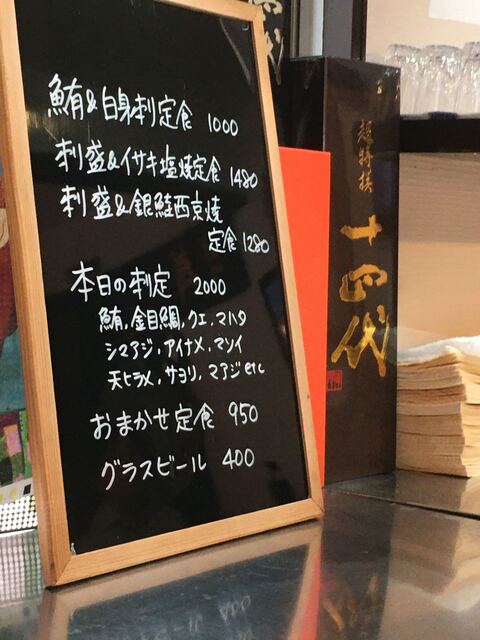 鮪&白身刺定食 1000
刺盛&イサキ塩焼定食 1480
刺盛&銀鮭西京焼
定食 1280
本日の刺定 2000
鮪、金目鯛、クエ、マハタ
シマアジ、アイナメ、マソイ
天ヒラメ、サヨリ、マアジ etc
おまかせ定食 950
グラスビール 400
超特撰
十四代